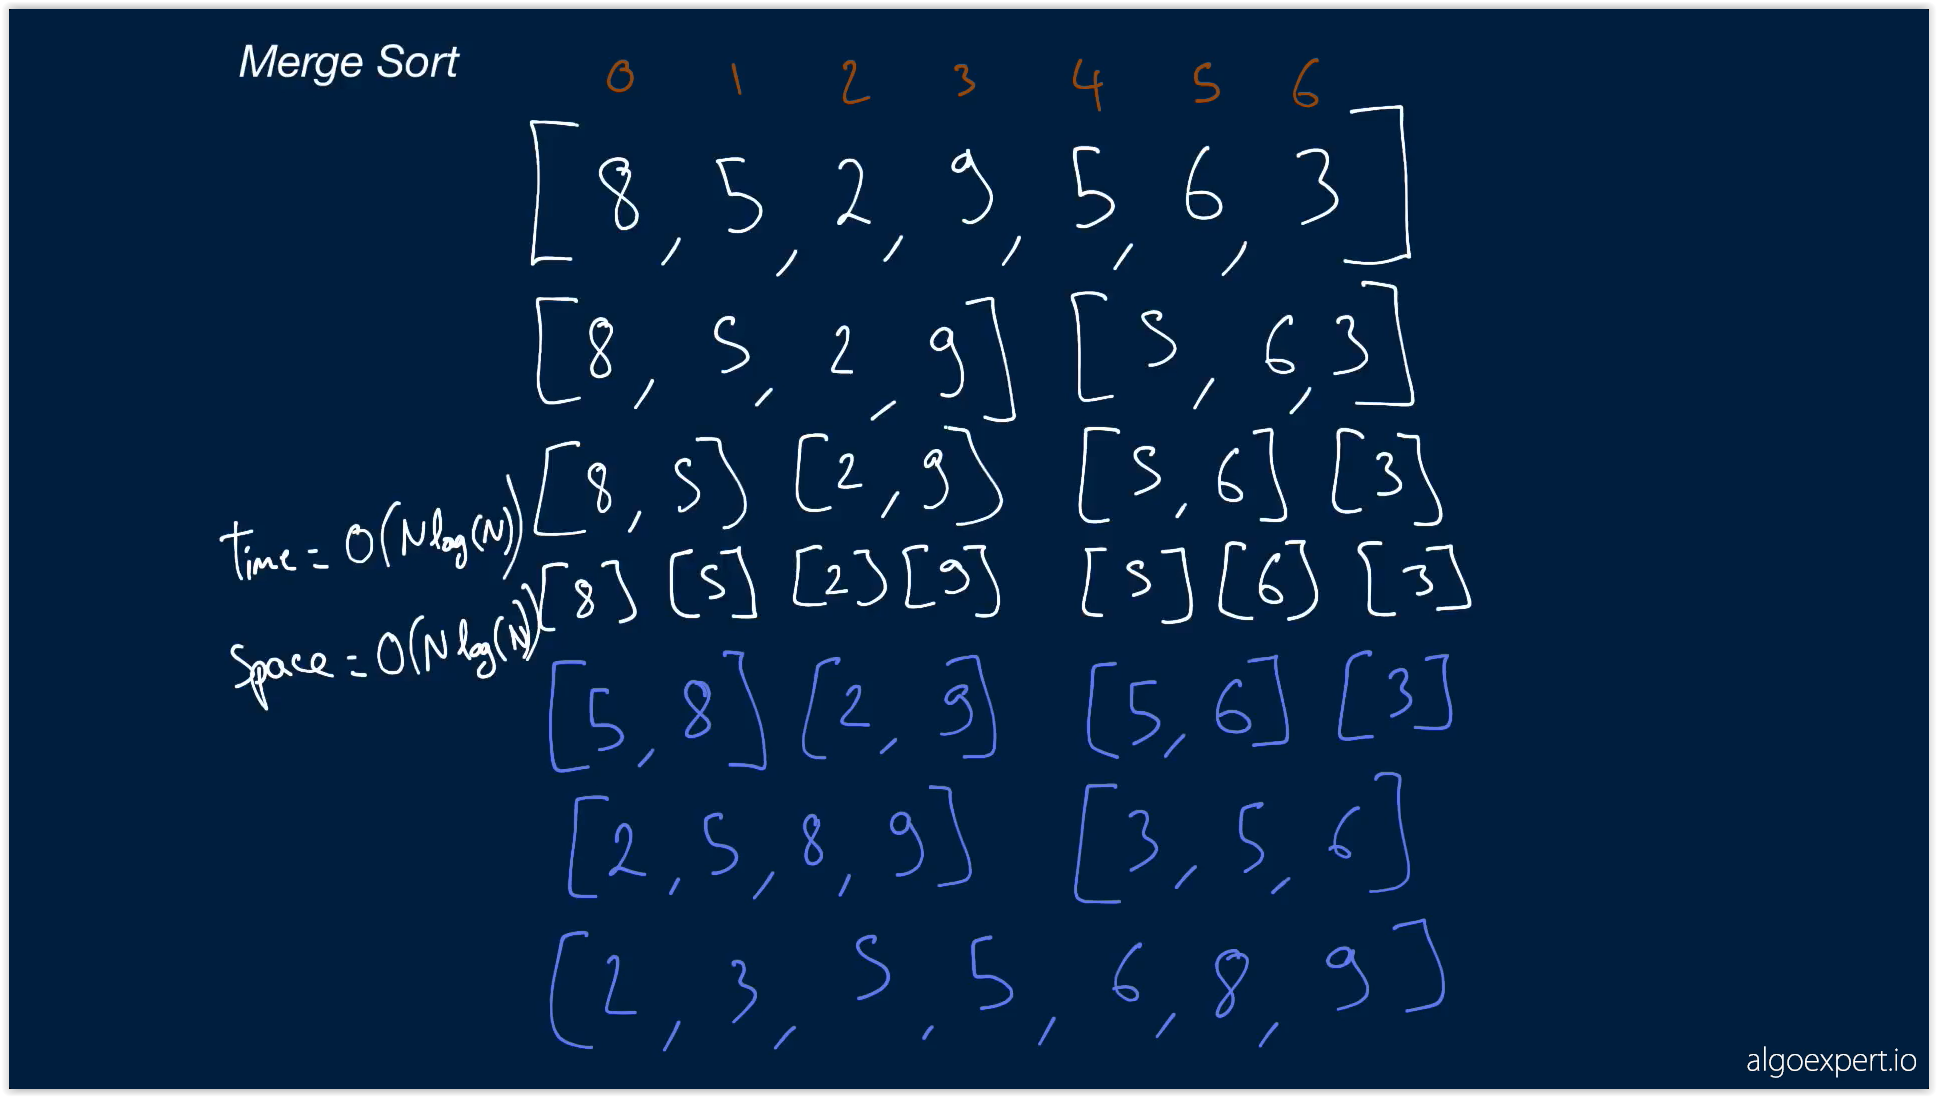 Merge Sort
0 1 2 3 4 5 6
[8, 5, 2, 9, 5, 6, 3]
[8, 5, 2, 9] [5, 6, 3]
[8, 5] [2, 9] [5, 6] [3]
Time = O(Nlog(N))
[8] [5] [2] [9] [5] [6] [3]
Space = O(Nlog(N))
[5, 8] [2, 9] [5, 6] [3]
[2, 5, 8, 9] [3, 5, 6]
[2, 3, 5, 5, 6, 8, 9]
algoexpert.io